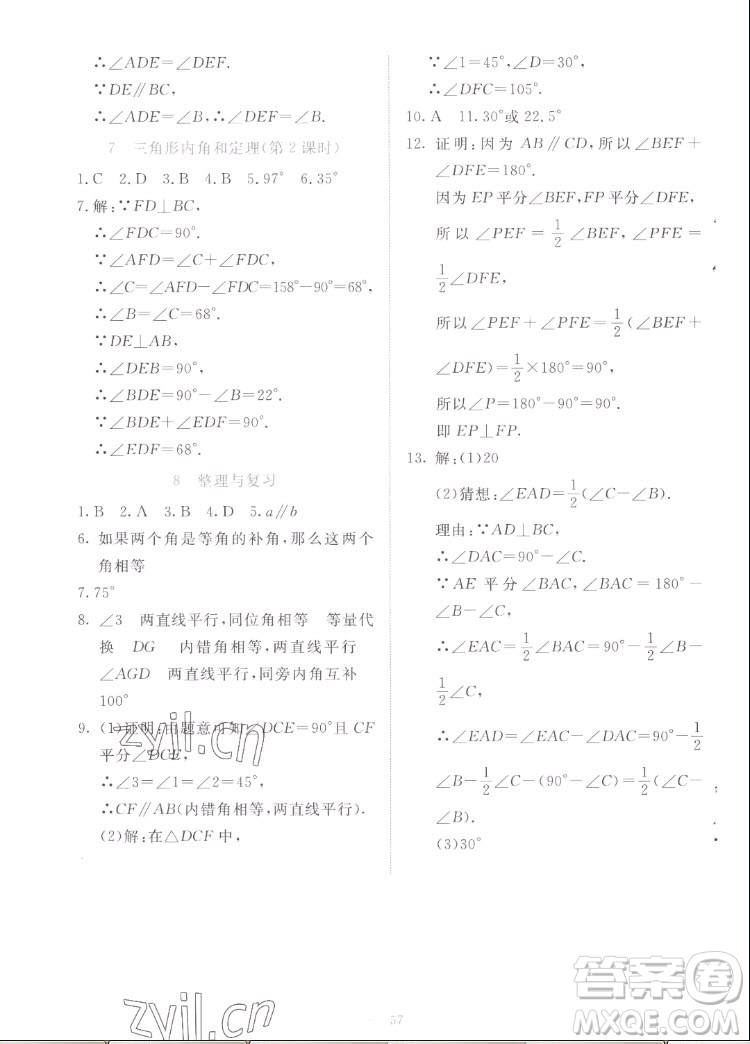 ∴∠ADE=∠DEF.
∵DE∥BC,
∴∠ADE=∠B,∴∠DEF=∠B.
7 三角形内角和定理(第2课时)
1.C 2.D 3.B 4.B 5.97° 6.35°
7.解:∵FD⊥BC,
∴∠FDC=90°.
∵∠AFD=∠C+∠FDC,
∴∠C=∠AFD-∠FDC=158°-90°=68°,
∴∠B=∠C=68°.
∵DE⊥AB,
∴∠DEB=90°,
∴∠BDE=90°-∠B=22°.
∵∠BDE+∠EDF=90°,
∴∠EDF=68°.
8 整理与复习
1.B 2.A 3.B 4.D 5.a∥b
6. 如果两个角是等角的补角,那么这两个
角相等
7.75°
8. ∠3 两直线平行,同位角相等 等量代
换 DG 内错角相等,两直线平行
∠AGD 两直线平行,同旁内角互补
100°
9. (1)证明:由题意可知∠DCE=90°且 CF
平分∠DCE,
∴∠3=∠1=∠2=45°,
∴CF∥AB(内错角相等,两直线平行).
(2)解:在△DCF中,
∵∠1=45°,∠D=30°,
∴∠DFC=105°.
10. A 11.30°或 22.5°
12. 证明:因为 AB∥CD,所以∠BEF+
∠DFE=180°.
因为EP平分∠BEF,FP平分∠DFE,
所以∠PEF=1/2∠BEF,∠PFE=
1/2∠DFE,
所以∠PEF+∠PFE=1/2(∠BEF+
∠DFE)=1/2×180°=90°,
所以∠P=180°-90°=90°.
即 EP⊥FP.
13. 解:(1)20
(2)猜想:∠EAD=1/2(∠C-∠B).
理由:∵AD⊥BC,
∴∠DAC=90°-∠C.
∵AE 平分∠BAC,∠BAC=180°-
∠B-∠C,
∴∠EAC=1/2∠BAC=90°-1/2∠B-
1/2∠C,
∴∠EAD=∠EAC-∠DAC=90°-1/2
∠B-1/2∠C-(90°-∠C)=1/2(∠C-
∠B).
(3)30°
zyil.cn
zyil.cn
57
答案圈
MXQE.COM